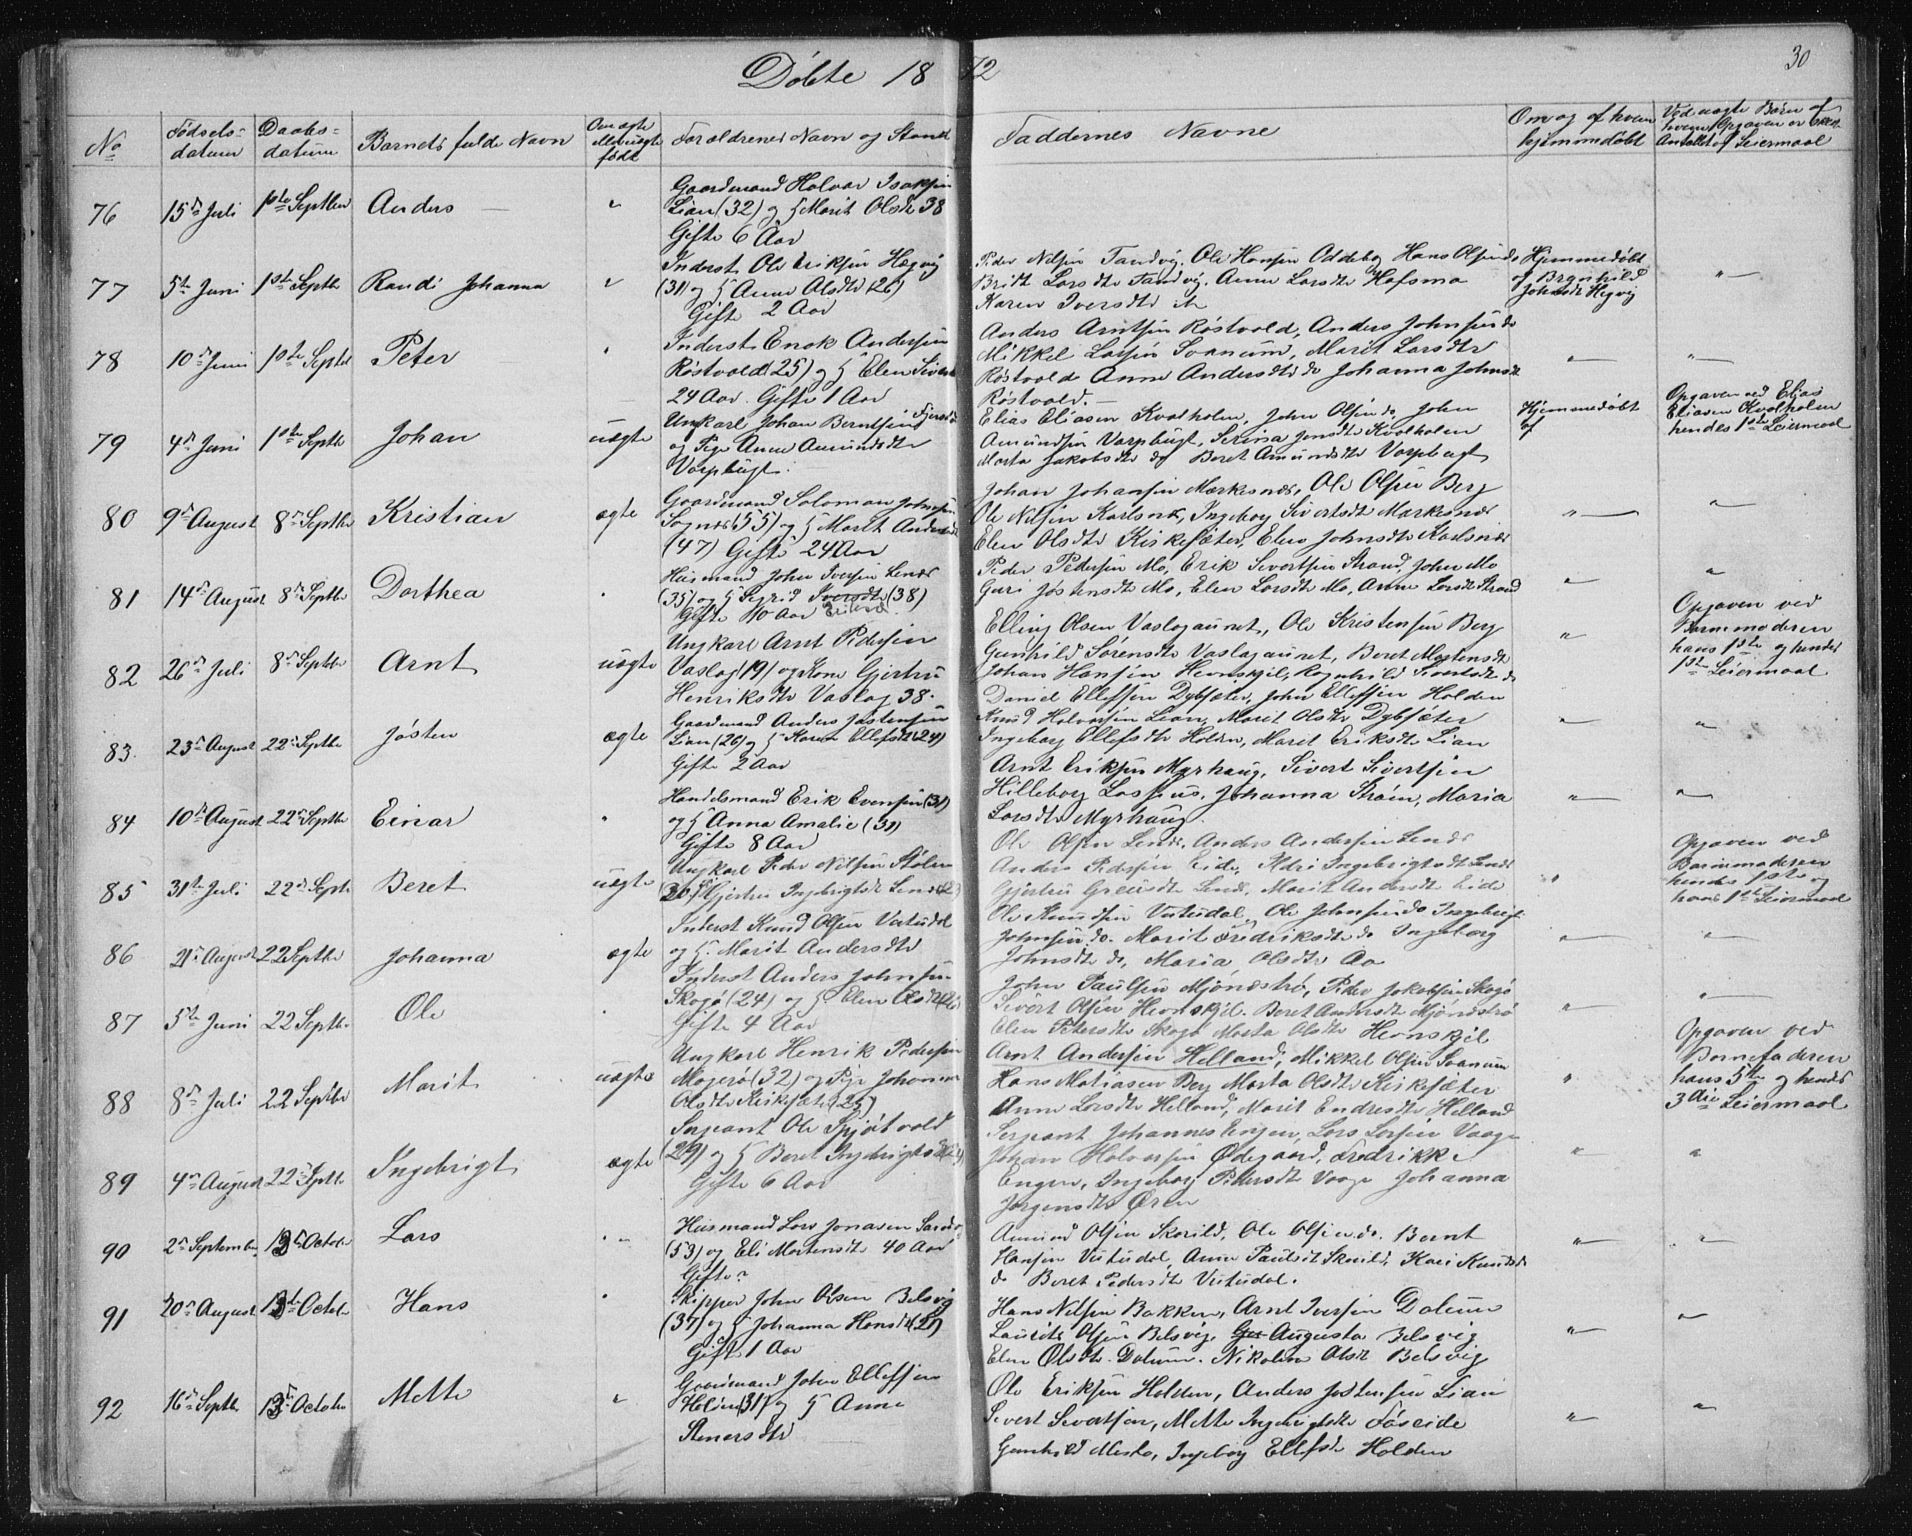 Döbte 1872
30
No
Fødsels-
datum
Daabs-
datum
Barnets fulde Navn
Om ægte
eller uægte
født
Forældrenes Navn og Stand
Faddernes Navne
Om og af hvem
hjemmedøbt
Ved uægte Børn af
hvem Opgaven er skeet
Antallet af Leiermaal
76 15de Juli 1ste Septber Anders — "
Gaardmand Halvor Isaksen
Lian (32) og H Marit Olsdtr 38
Gifte 6 Aar
77 5te Juni 1ste Septbr Randi Johanna "
Inderst Ole Eriksen Hegvig
(31) og H Anne Olsdtr (26)
Gifte 2 Aar
Peder Nilsen Tandvig, Ole Hansen Oddebog Hans Olsen do
Brit Larsdtr Tandvig, Anne Larsdtr Hofsmo
Karen Iversdtr
Hjemmedøbt
af Brynhild
Johnsdtr Hegvig
"
78 10de Juni 1ste Septbr Peter "
Inderst Enok Andersen
Röstvold (25) og H Elen Sivertsdtr
24 Aar. Gifte 1 Aar
Anders Arntsen Röstvold, Anders Johnsen do
Mikkel Larsen Svanum, Marit Larsdtr
Röstvold Anne Andersdtr do Johanna Johnsdtr
Röstvold. —
" "
79 4de Juni 1ste Septbr Johan uægte
Ungkarl Johan Berntsen
og Pige Anne Amundsdtr
Vorpbugt.
Elias Eliasen Kvalholm, John Olsen do, John
Amundsen Vorpbugt, Serina Jonsdtr Kvalholm
Marta Jakobsdtr og Beret Amundsdtr Vorpbugt
Hjemmedøbt
af
Opgaven ved Elias
Eliasen Kvalholm
hendes 1ste Leiermaal
80 9de August 8de Septbr Kristian ægte
Gaardmand Solomon Johnsen
Sognes (55) og H Marit Andersdtr
(47) Gifte 24 Aar
Johan Johansen Markesnes, Ole Olsen Berg
Ole Nilsen Karlsnes, Ingeborg Sivertsdtr Markesnes
Elen Olsdtr Kirksæter, Elen Johnsdtr Karlsnes
" "
81 14de August 8de Septbr Dorthea "
Husmand John Iversen Lenes
(35) og H Sigrid Iversdtr (38)
Gifte 10 Aar
Peder Pedersen Mo, Erik Sivertsen Strand, John Mo
Guri Jostensdtr Mo, Elen Larsdtr Mo, Anne Larsdtr Strand
" "
82 26de Juli 8de Septbr Arnt uægte
Ungkarl Arnt Pedersen
Vaslag (19) og Kone Gjertru
Henriksdtr Vaslag 38.
Elling Olsen Vaslagaunet, Ole Kristensen Berg
Gunhild Sørensdtr Vaslagaunet, Beret Mortensdtr
Johan Hansen Hevnskjel, Ragnhild Sivertsdtr do
"
Opgaven ved
Barnemoderen
hans 1ste og hendes
1ste Leiermaal
83. 23de August 22de Septbr Jøsten ægte
Gaardmand Anders Jostensen
Lian (26) og H Karen Ellefsdtr (24)
Gifte 2 Aar
Daniel Ellefsen Dybsæter, John Ellefsen Holden
Knud Halvorsen Lian, Marit Olsdtr Dybsæter
Ingeborg Ellefsdtr Holden, Marit Eriksdtr Lian
" "
84 10de August 22de Septbr Einar "
Handelsmand Erik Evensen (31)
og H Anna Amalie (31)
Gifte 8 Aar
Arnt Eriksen Myrhaug, Sivert Sivertsen
Hilleborg Lossius, Johanna Strøm, Maria
Larsdtr Myrhaug.
" "
85 31te Juli 22de Septbr Beret uægte
Ungkarl Peder Nilsen Stølen
30 og Gjertru Ingebrigtsdtr Lenes
Ole Olsen Lenes, Anders Andersen Lenes
Anders Pedersen Eide, Ildri Ingebrigtsdtr Lenes
Gjertru Greisdtr Lenes, Marit Andersdtr Eide
"
Opgaven ved
Barnemoderen
hendes 1ste og
hans 1ste Leiermaal
86 21de August 22 Septbr Johanna ægte
Inderst Knud Olsen Vutudal
og H. Marit Andersdtr
Ole Knudsen Vutudal, Ole Johnsen do Ingebrigt
Johnsen do. Marit Fredriksdtr do Ingeborg
Johnsdtr do, Maria Olsdtr Aa
" "
87 5te Juni 22 Septbr Ole "
Inderst Anders Johnsen
Skogø (24) og H Elen Olsdtr
Gifte 4 Aar
John Paulsen Mjønestrø, Peder Jakobsen Skogø
Sivert Olsen Hevnskjel. Beret Arntsdtr Mjønestrø
Elen Petersdtr Skogø Marta Olsdtr Hevnskjel
" "
88 8de Juli 22 Septbr Marit uægte
Ungkarl Henrik Pedersen
Magerø (32) og Pige Johanna
Olsdtr Kirksæter (25)
Arnt Andersen Helland, Mikkel Olsen Svanum
Hans Matiasen Berg Marta Olsdtr Kirksæter
Anne Larsdtr Helland, Marit Endresdtr Helland
"
Opgaven ved
Barnefaderen
hans 5te og hendes
3die Leiermaal
89 4de August 22 Septbr Ingebrigt ægte
Serjeant Ole Spjøtvold
(29) og H Beret Ingebrigtsdtr
Gifte 6 Aar
Serjeant Johannes Engen, Lars Larsen Vaage
Johan Halvorsen Ødegaard, Fredrikke
Engen, Ingeborg Pedersdtr Vaage Johanna
Jørgensdtr Øren
" "
90 2de September 13de Octobr Lars "
Husmand Lars Jonasen
(53) og Eli Mortensdtr 40 Aar
Gifte?
Amund Olsen Skorild, Ole Olsen do. Bernt
Hansen Vutudal, Anne Paulsdtr Skorild, Kari Knudsdtr
do Beret Pedersdtr Vutudal.
" "
91 20de August 13de Octobr Hans "
Skipper John Olsen Belsvig
(37) og H Johanna Hansdtr (21)
Gift 1 Aar
Hans Nilsen Bakken, Arnt Iversen Dalum
Laurits Olsen Belsvig, Augusta Belsvig
Elen Olsdtr. Dalum. Nikoline Olsdtr Belsvig
" "
92 16de Septbr 13de Octobr Mette "
Gaardmand John Ellefsen
Holden (31) og H Anne
Stenersdtr
Ole Eriksen Holden, Anders Jostensen Lian
Sivert Sivertsen, Mette Ingebrigtsdtr Føseide
Gunhild Mesto, Ingeborg Ellefsdtr Holden
" "